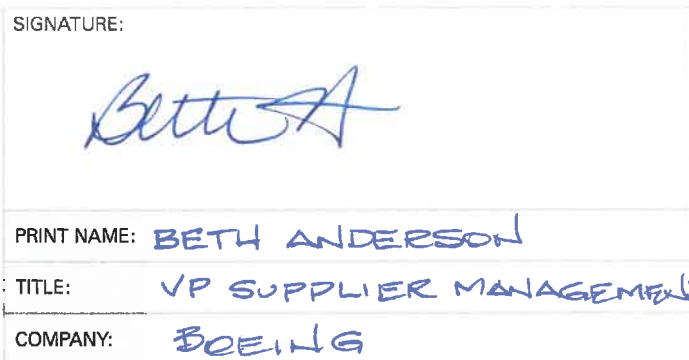 SIGNATURE:
Beth A
PRINT NAME: BETH ANDERSON
TITLE: VP SUPPLIER MANAGEMENT
COMPANY: BOEING